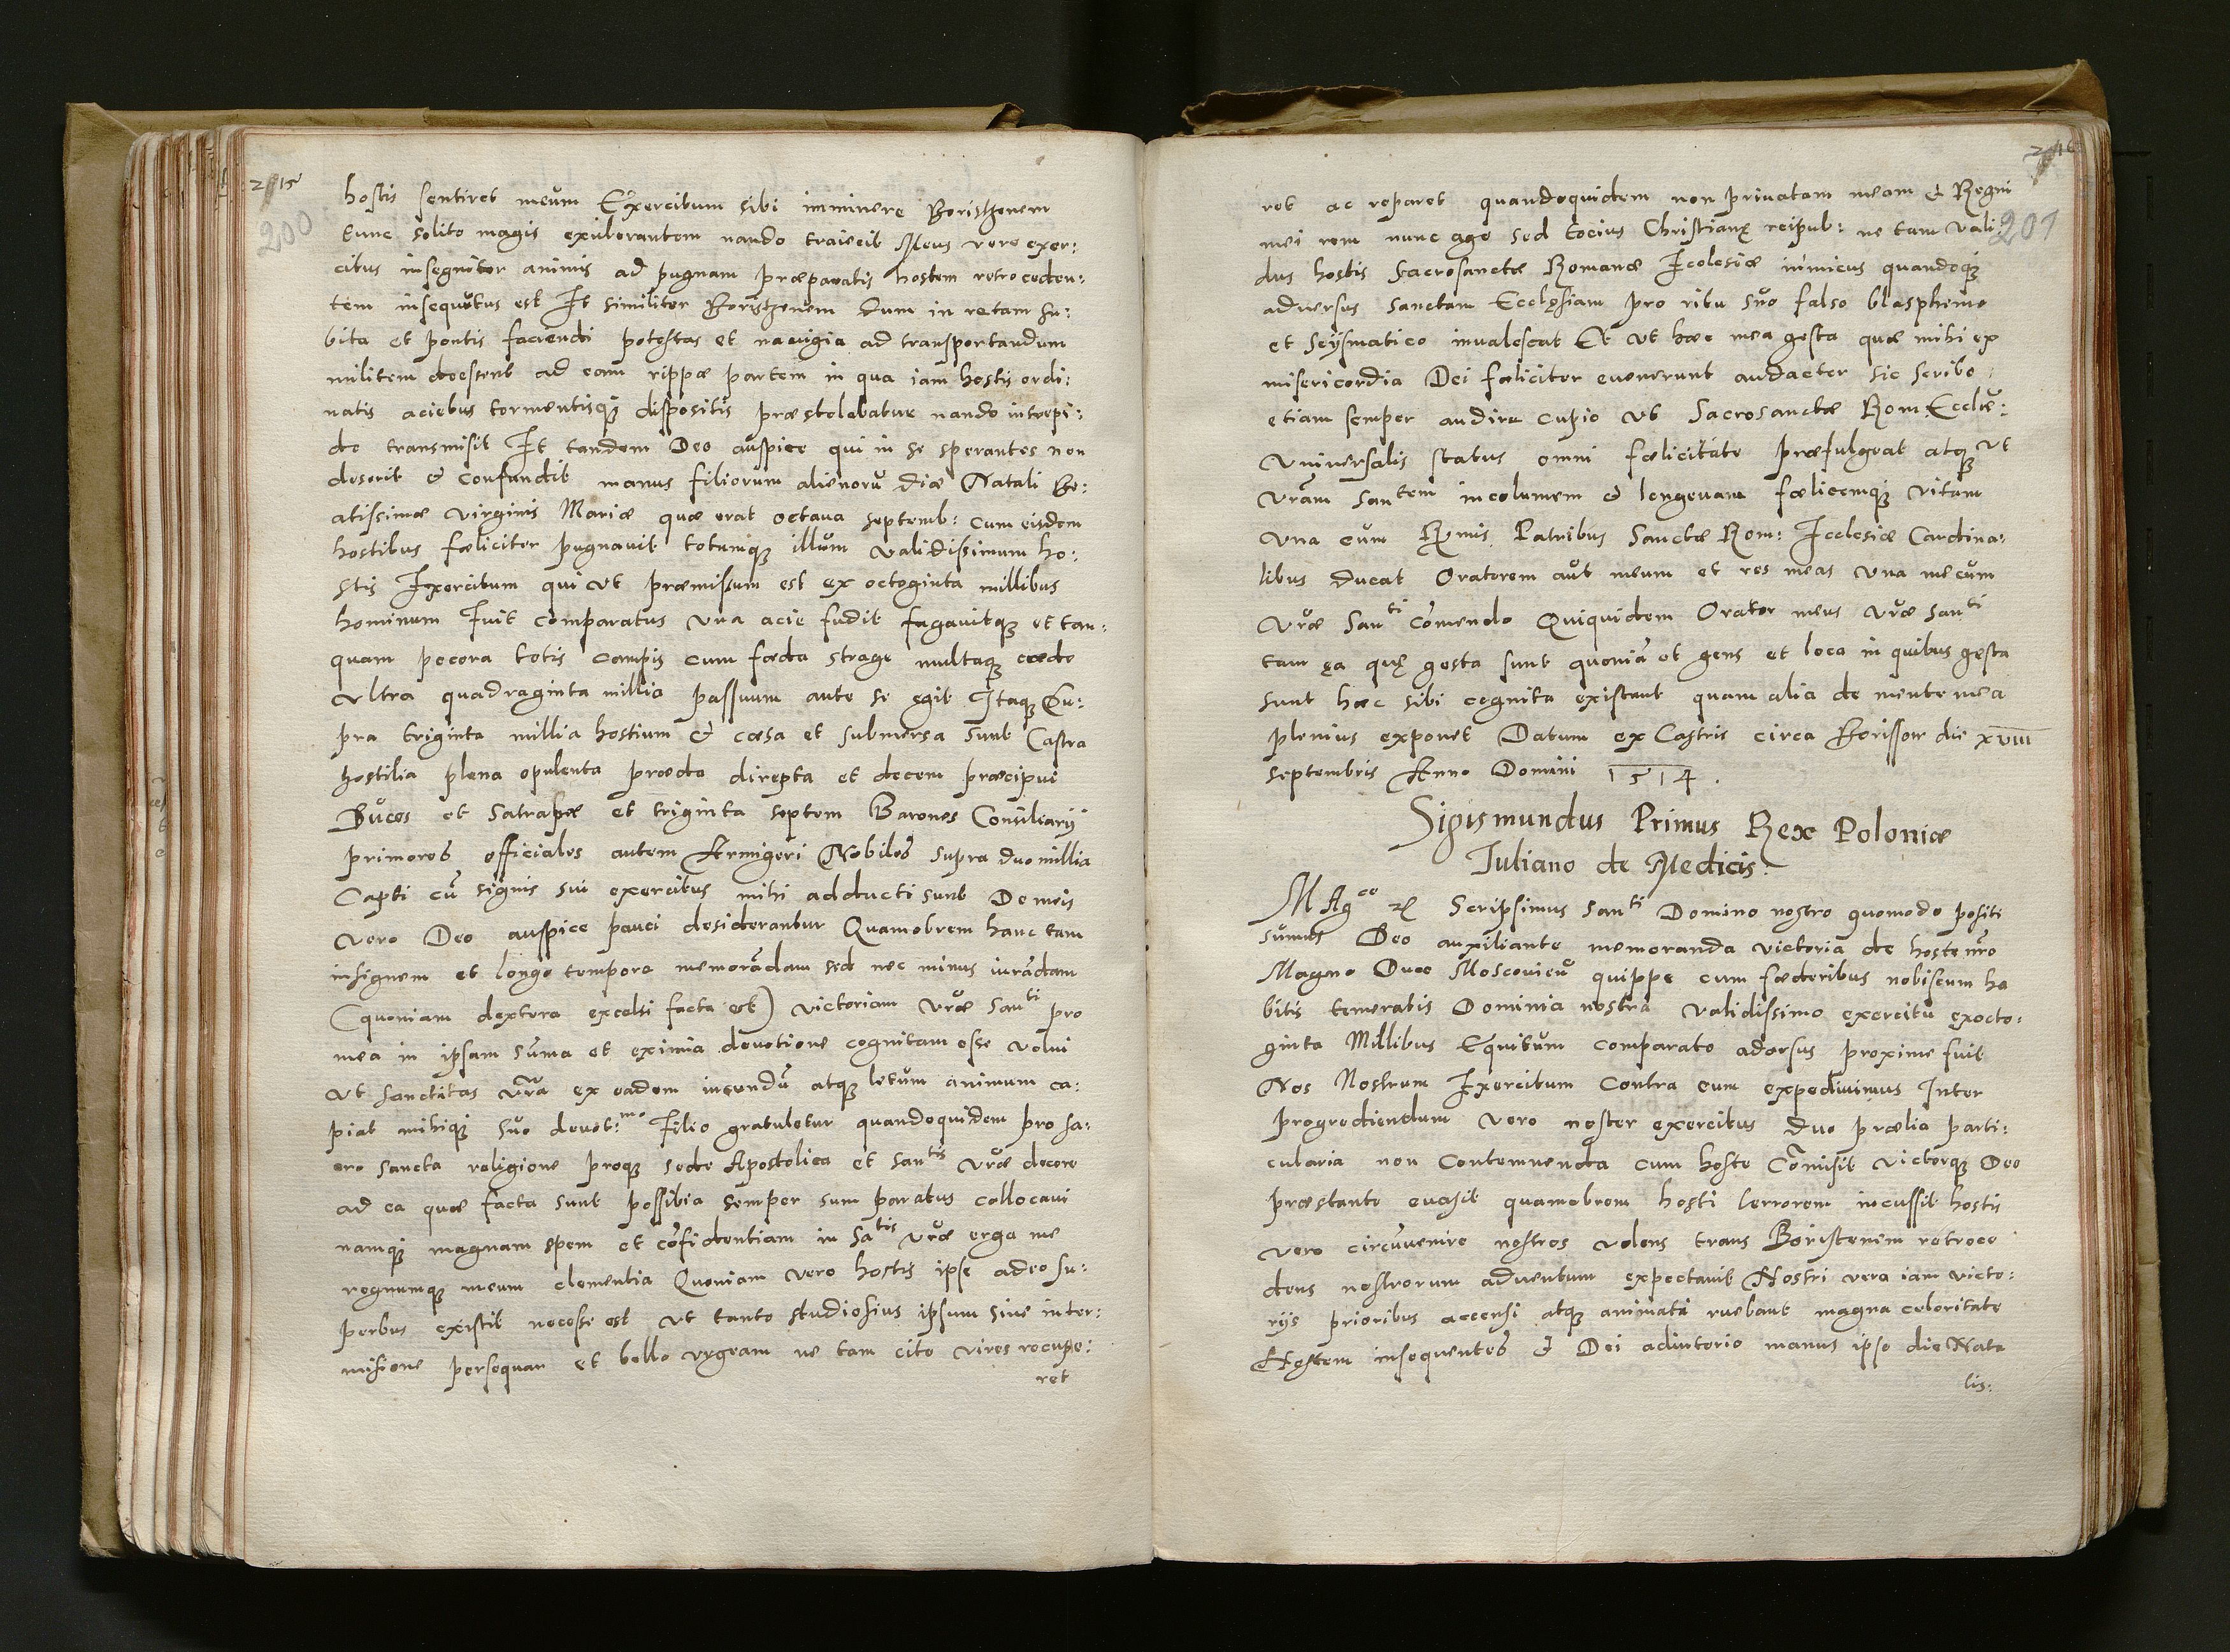 215
200
hostis sentiret meum Exercitum sibi imminere Boristhenem
tunc solito magis exuberantem nando traiecit Meus vero exer:
citus insegniter animis ad pugnam præparatis hostem retroceden:
tem insequutus est Et similiter Boristhenem dum in re tam su:
bita et pontis faciendi potestas et nauigia ad transportandum
militem deessent ad eam rippæ partem in qua iam hostis ordi:
natis aciebus tormentisq3 dispositis præstolabatur nando intrepi:
de transmisit Et tandem Deo auspice qui in se sperantes non
deserit & confundit manus filiorum alienorū die Natali Be:
atissimæ virginis Mariæ quæ erat octaua septemb: cum eisdem
hostibus fœliciter pugnauit totumq3 illum validissimum ho:
stis Exercitum qui vt præmissum est ex octoginta millibus
hominum fuit comparatus vna acie fudit fugauitq3 et tan:
quam pecora totis campis cum fœda strage multaq3 cæde
vltra quadraginta millia passuum ante se egit Itaq3 Su:
pra triginta millia hostium & cæsa et submersa sunt Castra
hostilia plena opulenta præda direpta et decem præcipui
Duces et Satrapæ et triginta septem Barones Consiliarij
primores officiales autem Armigeri Nobiles supra duo millia
Capti cū signis sui exercitus mihi adducti sunt De meis
vero Deo auspice pauci desiderantur Quamobrem hanc tam
insignem et longo tempore memorādam sed nec minus
(quoniam dextera excelsi facta est) victoriam vr̄æ Santi pro
mea in ipsam sūma et eximia deuotione cognitam esse volui
vt sanctitas vr̄a ex eadem iucundū atq3 letum animum ca:
piat mihiq3 suo deuot:mo Filio gratuletur quandoquidem pro sa:
cro sancta religione proq3 sede Apostolica et Santis vr̄æ decore
ad ea quæ facta sunt possibia semper sum paratus collocaui
namq3 magnam spem et cōfidentiam in Sātis vr̄æ erga me
regnumq3 meum clementia Quoniam vero hostis ipse adeo su:
perbus existit necesse est vt tanto studiosius ipsum sine inter:
misione persequar et bello vrgeam ne tam cito vires recupe:
ret
216
201
ret ac reparet quandoquidem non priuatam meam & Regni
mei rem nunc ago sed tocius Christianę reipub: ne tam vali:
dus hostis Sacrosanctæ Romanæ Ecclesiæ inimicus quandoq3
aduersus sanctam Ecclęsiam pro ritu suo falso blasphemo
et Scysmatico inualescat Et vt hæc mea gesta quæ mihi ex
misericordia Dei fœliciter euenerunt audacter sic scribo
etiam semper audire cupio vt Sacrosanctæ Rom: Eccliæ:
Vniuersalis status omni fœlicitate præfulgeat atq3 vt
vrām santem incolumem & longeuam fœlicemq3 vitam
vna cum Rmis Patribus Sanctæ Rom: Ecclesiæ Cardina:
libus ducat Oratorem aut meum et res meas vna mecum
vr̄æ Santi cōmendo Quiquidem Orator meus vr̄æ Santi
tam ęa quę gesta sunt quoniā et gens et loca in quibus gesta
sunt hæc sibi cognita existant quam alia de mente mea
plenius exponet Datum ex Castris circa Borissow die xviii
septembris Anno Domini 1514.
Sigismundus Primus Rex Poloniæ
Iuliano de Medicis.
MAgco Scripsimus Santi Domino nostro quomodo positi
sumus Deo auxiliante memoranda victoria de hoste nr̄o
Magno Duce Moscouieū quippe cum fœderibus nobiscum ha
bitis temeratis Dominia nostra validissimo exercitu exocto:
ginta Millibus Equitum comparato adorsus proxime fuit
Nos Nostrum Exercitum contra eum expediuimus Inter
progrediendum vero noster exercitus duo prælia parti:
cularia non contemnenda cum hoste Cōmisit victorq3 Deo
præstante euasit quamobrem hosti terrorem incussit hostis
vero circūuenire nostros volens trans Boristenim retroce
dens nostrorum aduentum expectauit Nostri vero iam victo:
rijs prioribus accensi atq3 animati ruebant magna celeritate
Hostem insequentes & Dei adiutorio manus ipso die Nata
lis: